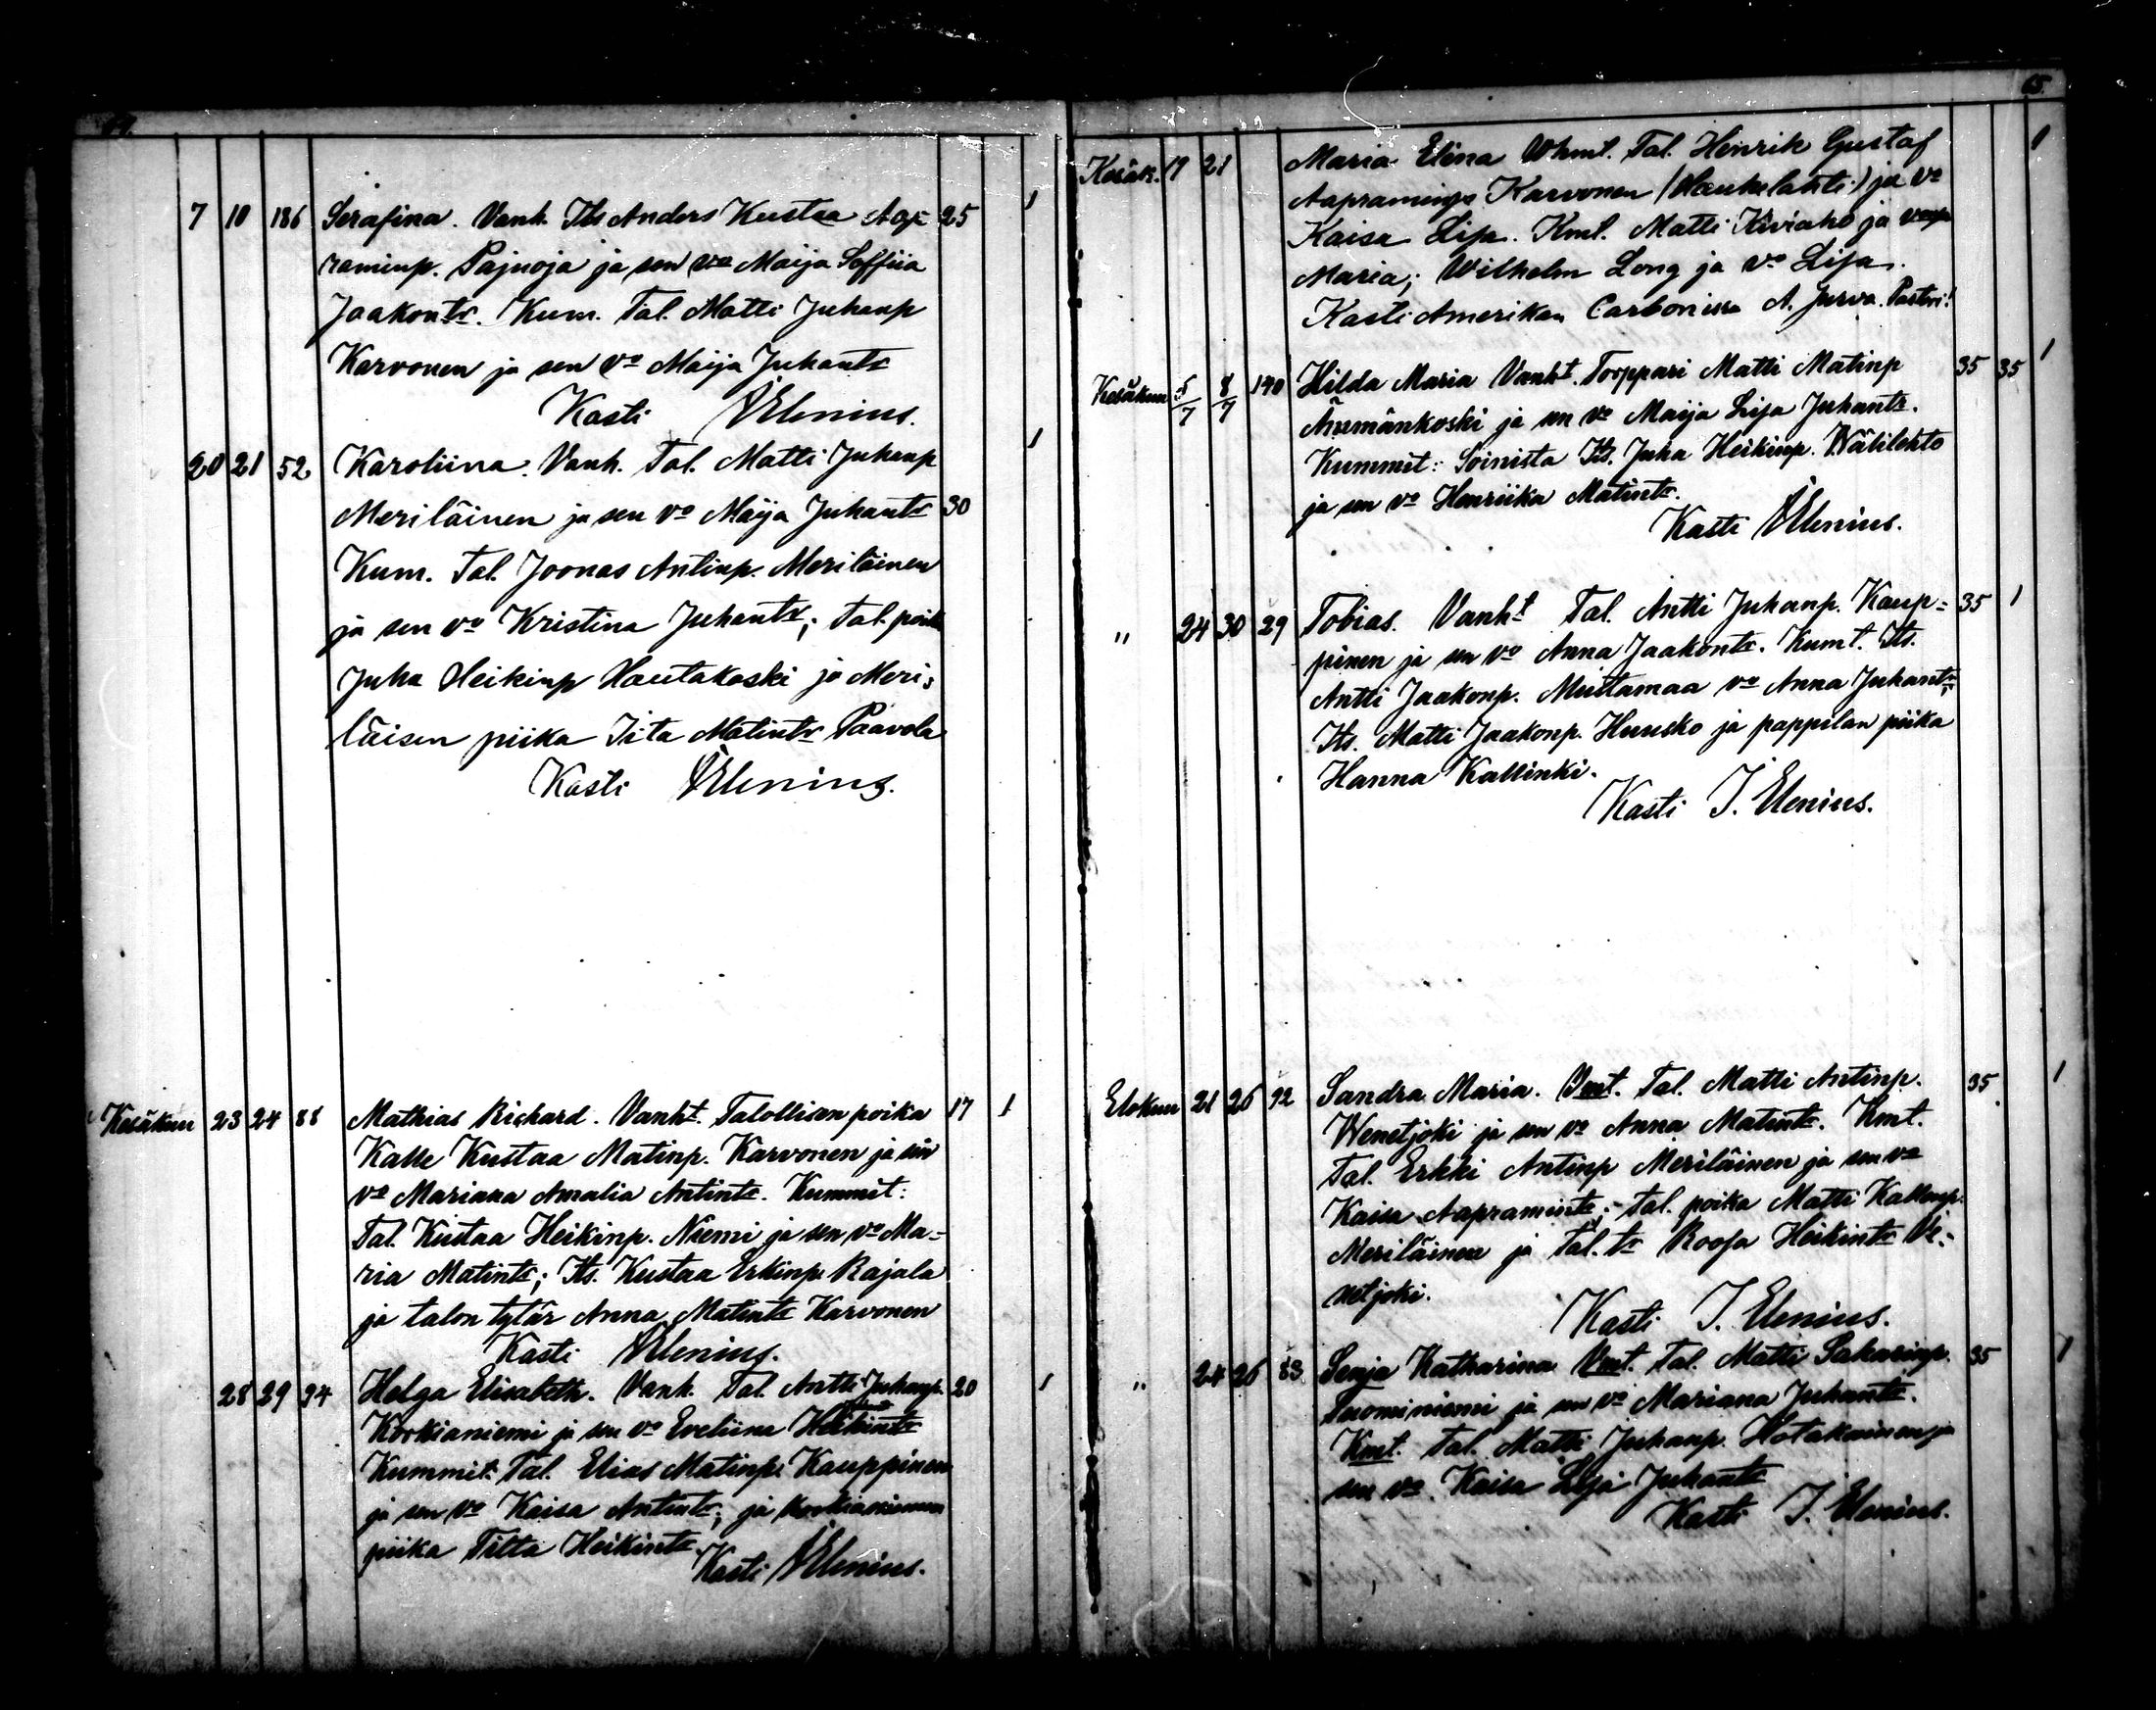 7 10 186 Serafina. Vanh. Its Anders Kustaa Aap- 25 1
raminp. Pajuoja ja sen vo Maija Soffiia
Jaakontr. Kum. Tal. Matti Juhanp
Karvonen ja sen vo Maija Juhantr
Kasti Elenius.
20 21 52 Karoliina. Vanh. Tal. Matti Juhanp 1
Meriläinen ja sen vo Maija Juhantr 30
Kum. Tal. Joonas Antinp. Meriläinen
ja sen vo Kristina Juhantr; Tal. poika
Juha Heikinp Hautakoski ja Meri-
läisen piika Iita Matintr Paavola
Kasti Elenius.
Kesäkuu 23 24 88 Mathias Richard. Vanht. Talollisen poika 17 1
Kalle Kustaa Matinp. Karvonen ja sen
vo Mariana Amalia Antintr. Kummit:
Tal. Kustaa Heikinp. Niemi ja sen vo Ma-
ria Matintr; Its. Kustaa Erkinp. Rajala
ja talon tytär Anna Matintr Karvonen
Kasti Elenius.
28 29 94 Helga Elisabeth. Vanh. Tal. Antti Juhanp. 20 1
Korkianiemi ja sen vo Eveliina Heikintr
Kummit. Tal. Elias Matinp. Kauppinen
ja sen vo Kaisa Antintr; ja Korkianiemen
piika Tilta Heikintr.
Kasti Elenius.
65.
Kesäk. 19 21 Maria Elina Vhmt. Tal. Henrik Gustaf 1
Aapraminp Karvonen (Haukilahti) ja vo
Kaisa Lisa. Kmt. Matti Kiviaho ja vaimo
Maria; Wilhelm Long ja vo Lisa.
Kasti Amerikan Carbonissa A. Jurva. Pastori!
Kesäkuu 5/7 8/7 140 Hilda Maria Vanht. Torppari Matti Matinp 35 35 1
Ämmänkoski ja sen vo Maija Lisa Juhantr.
Kummit: Soinista Its. Juha Heikinp. Välilehto
ja sen vo Henriika Matintr.
Kasti Elenius.
" 24 30 29 Tobias. Vanht Tal. Antti Juhanp. Kaup- 35 1
pinen ja sen vo Anna Jaakontr. Kumt. Its.
Antti Jaakonp. Mustamaa vo Anna Juhantr;
Its. Matti Jaakonp. Huusko ja pappilan piika
Hanna Kallinki.
Kasti J. Elenius.
Elokuu 21 26 92 Sandra Maria. Vmt. Tal. Matti Antinp. 35 1
Wenetjoki ja sen vo Anna Matintr. Kmt.
Tal. Erkki Antinp Meriläinen ja sen vo
Kaisa Aapramintr; tal. poika Matti Kallenp.
Meriläinen ja tal. tr Roosa Heikintr Ve-
netjoki.
Kasti J. Elenius.
" 24 26 83 Senja Katharina Vmt. Tal. Matti Sakarinp. 35 1
Tuominiemi ja sen vo Mariana Juhantr.
Kmt. Tal. Matti Juhanp. Hotakainen ja
sen vo Kaisa Lisa Juhantr
Kasti J. Elenius.